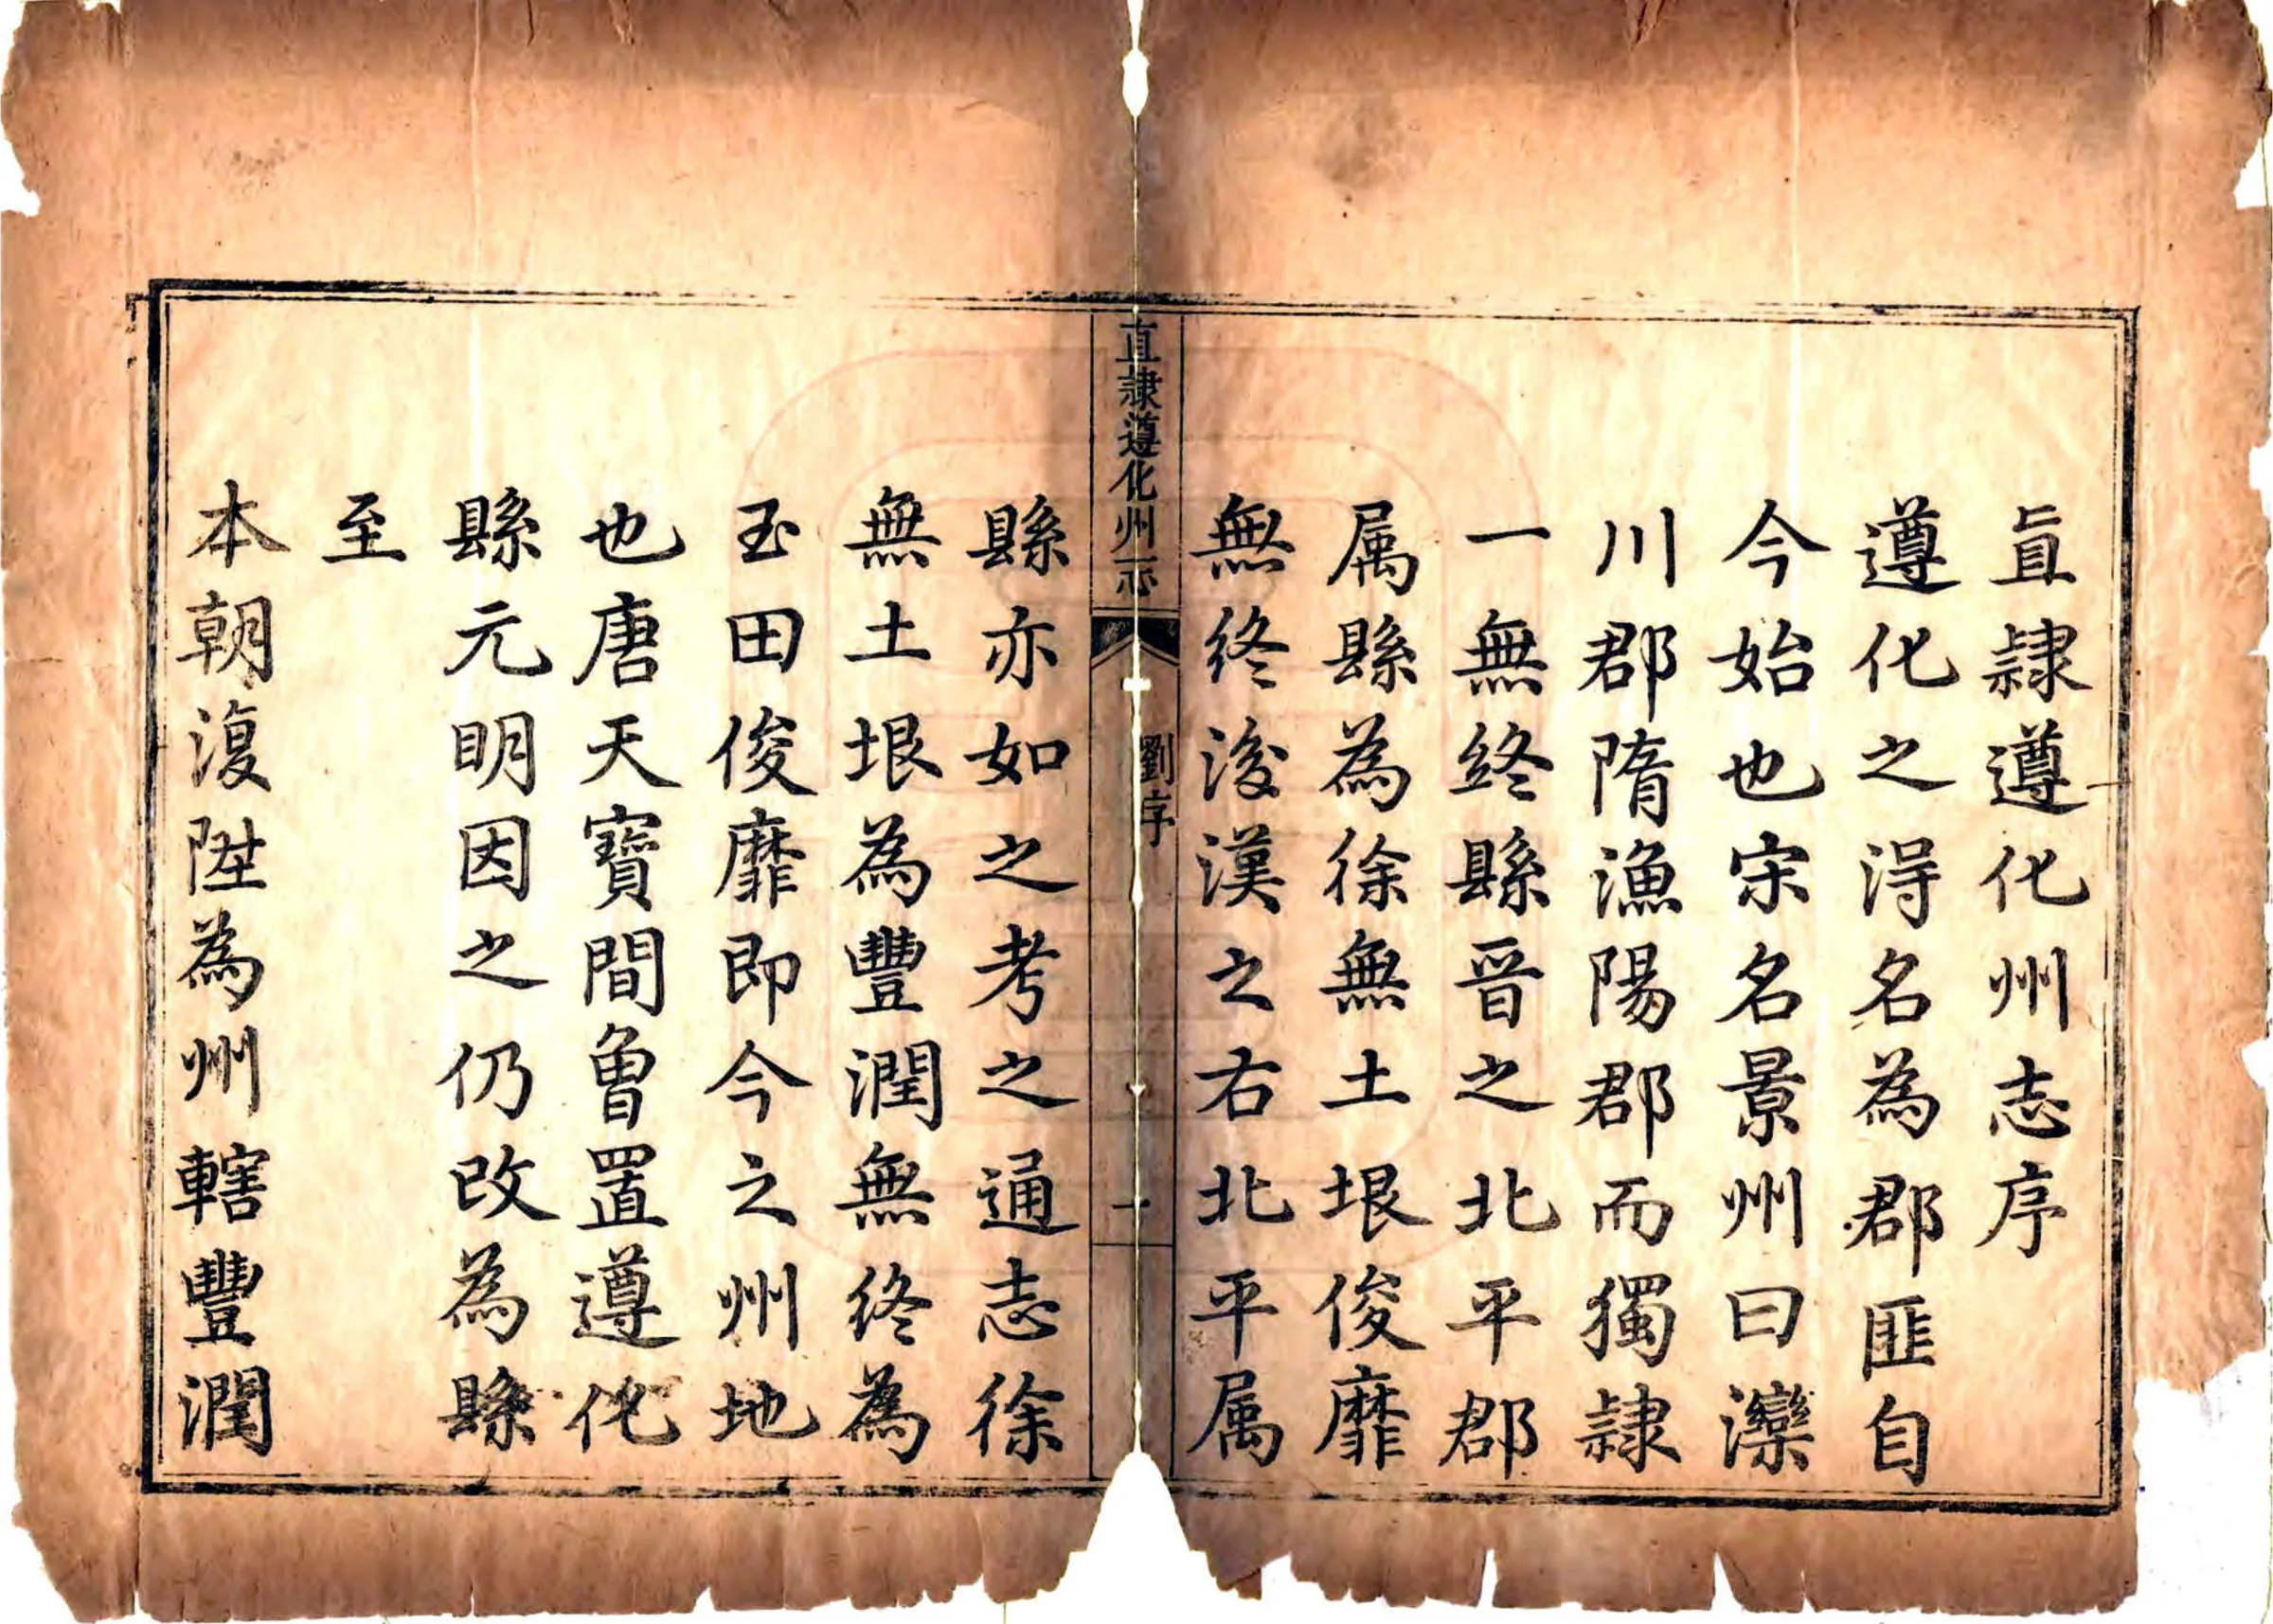 直隷遵化州志序
遵化之淂名為郡匪自
今始也宋名景州曰灤
川郡隋漁陽郡而獨隷
一無終縣晉之北平郡
属縣為徐無土垠俊靡
無终浚漢之右北平属
直隷遵化州志
劉序
一
縣亦如之考之通志徐
無土垠為豐潤無终為
玉田俊靡即今之州地
也唐天寶間魯置遵化
縣元明因之仍改為縣
至
本朝復陞為州轄豐潤